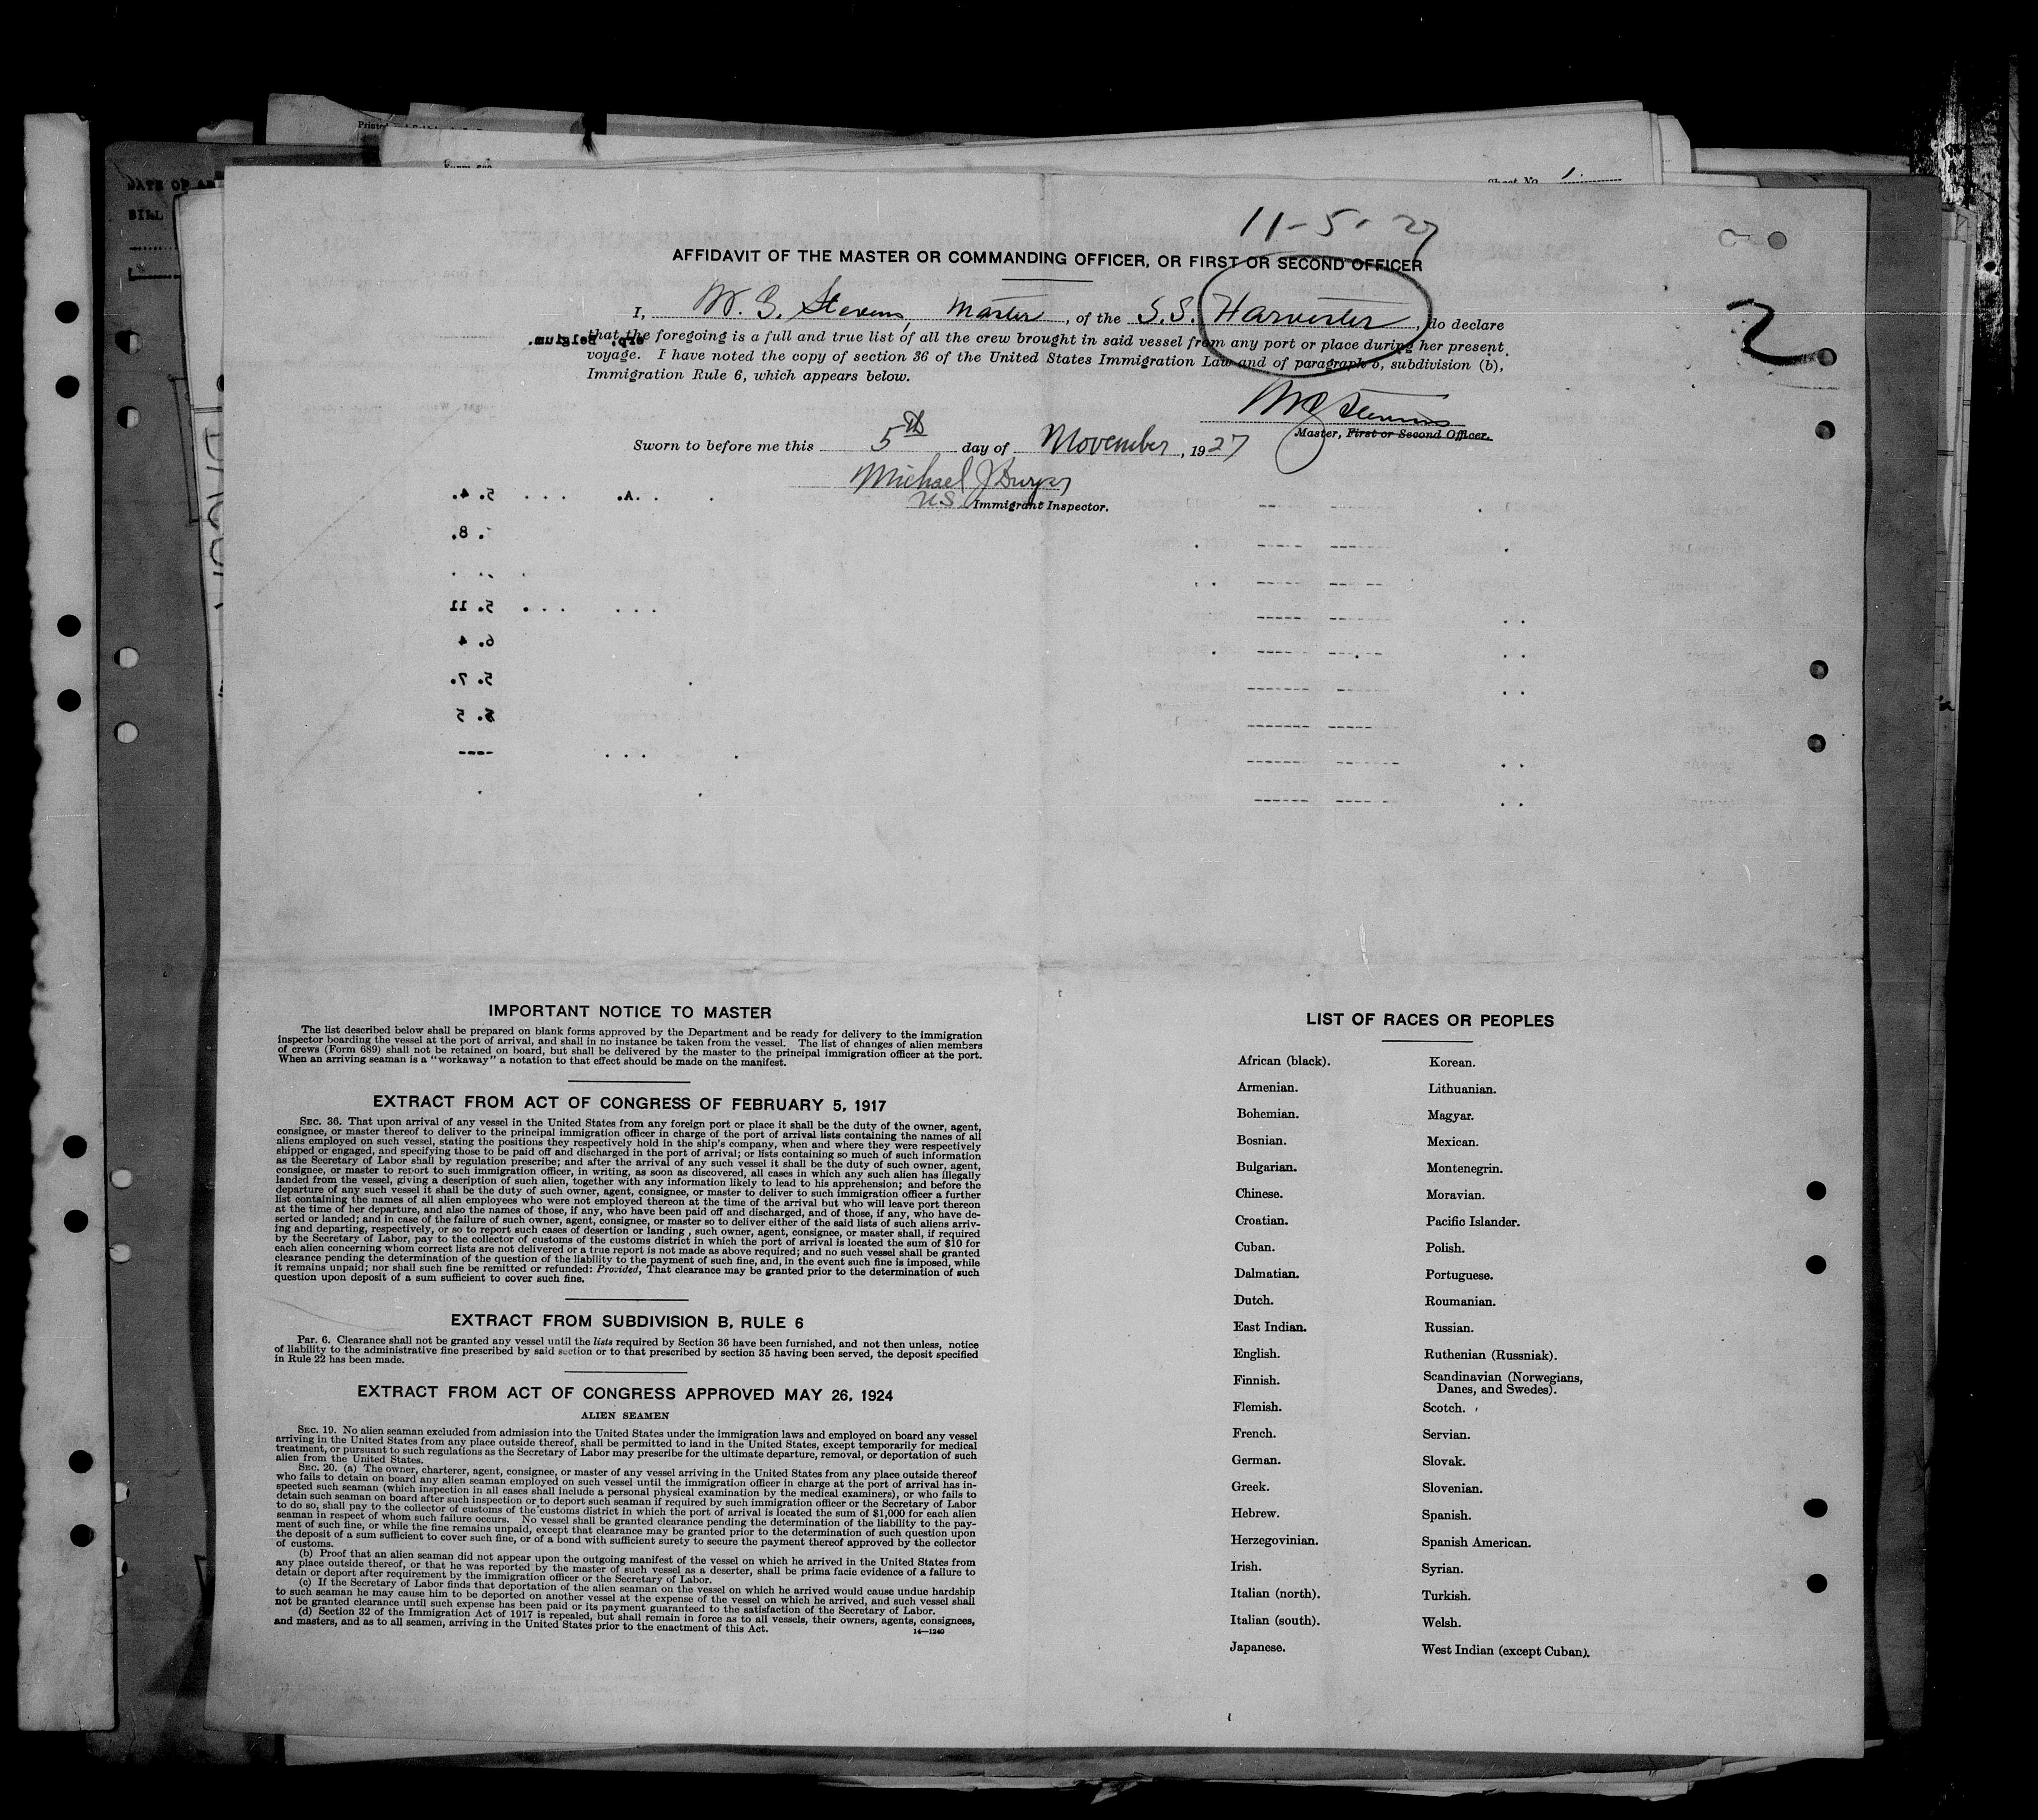 DATE OF AR
BILL
Printed
Form 689
Sheet No. 1
11-5-27
2
AFFIDAVIT OF THE MASTER OR COMMANDING OFFICER, OR FIRST OR SECOND OFFICER
I, W. G. Stevens, Master, of the S.S. Harvester, do declare
that the foregoing is a full and true list of all the crew brought in said vessel from any port or place during her present
voyage. I have noted the copy of section 36 of the United States Immigration Law and of paragraph 6, subdivision (b),
Immigration Rule 6, which appears below.
erp, Belgium.
WG Stevens
Master, First or Second Officer.
Sworn to before me this 5th day of November, 1927
Michael J Dwyer
U.S. Immigrant Inspector.
5. 4.
8.
5. 11
6. 4
5. 7.
5. 5
----
IMPORTANT NOTICE TO MASTER
The list described below shall be prepared on blank forms approved by the Department and be ready for delivery to the immigration
inspector boarding the vessel at the port of arrival, and shall in no instance be taken from the vessel. The list of changes of alien members
of crews (Form 689) shall not be retained on board, but shall be delivered by the master to the principal immigration officer at the port.
When an arriving seaman is a "workaway" a notation to that effect should be made on the manifest.
EXTRACT FROM ACT OF CONGRESS OF FEBRUARY 5, 1917
SEC. 36. That upon arrival of any vessel in the United States from any foreign port or place it shall be the duty of the owner, agent,
consignee, or master thereof to deliver to the principal immigration officer in charge of the port of arrival lists containing the names of all
aliens employed on such vessel, stating the positions they respectively hold in the ship's company, when and where they were respectively
shipped or engaged, and specifying those to be paid off and discharged in the port of arrival; or lists containing so much of such information
as the Secretary of Labor shall by regulation prescribe; and after the arrival of any such vessel it shall be the duty of such owner, agent,
consignee, or master to report to such immigration officer, in writing, as soon as discovered, all cases in which any such alien has illegally
landed from the vessel, giving a description of such alien, together with any information likely to lead to his apprehension; and before the
departure of any such vessel it shall be the duty of such owner, agent, consignee, or master to deliver to such immigration officer a further
list containing the names of all alien employees who were not employed thereon at the time of the arrival but who will leave port thereon
at the time of her departure, and also the names of those, if any, who have been paid off and discharged, and of those, if any, who have de-
serted or landed; and in case of the failure of such owner, agent, consignee, or master so to deliver either of the said lists of such aliens arriv-
ing and departing, respectively, or so to report such cases of desertion or landing, such owner, agent, consignee, or master shall, if required
by the Secretary of Labor, pay to the collector of customs of the customs district in which the port of arrival is located the sum of $10 for
each alien concerning whom correct lists are not delivered or a true report is not made as above required; and no such vessel shall be granted
clearance pending the determination of the question of the liability to the payment of such fine, and, in the event such fine is imposed, while
it remains unpaid; nor shall such fine be remitted or refunded: Provided, That clearance may be granted prior to the determination of such
question upon deposit of a sum sufficient to cover such fine.
EXTRACT FROM SUBDIVISION B, RULE 6
Par. 6. Clearance shall not be granted any vessel until the lists required by Section 36 have been furnished, and not then unless, notice
of liability to the administrative fine prescribed by said section or to that prescribed by section 35 having been served, the deposit specified
in Rule 22 has been made.
EXTRACT FROM ACT OF CONGRESS APPROVED MAY 26, 1924
ALIEN SEAMEN
SEC. 19. No alien seaman excluded from admission into the United States under the immigration laws and employed on board any vessel
arriving in the United States from any place outside thereof, shall be permitted to land in the United States, except temporarily for medical
treatment, or pursuant to such regulations as the Secretary of Labor may prescribe for the ultimate departure, removal, or deportation of such
alien from the United States.
SEC. 20. (a) The owner, charterer, agent, consignee, or master of any vessel arriving in the United States from any place outside thereof
who fails to detain on board any alien seaman employed on such vessel until the immigration officer in charge at the port of arrival has in-
spected such seaman (which inspection in all cases shall include a personal physical examination by the medical examiners), or who fails to
detain such seaman on board after such inspection or to deport such seaman if required by such immigration officer or the Secretary of Labor
to do so, shall pay to the collector of customs of the customs district in which the port of arrival is located the sum of $1,000 for each alien
seaman in respect of whom such failure occurs. No vessel shall be granted clearance pending the determination of the liability to the pay-
ment of such fine, or while the fine remains unpaid, except that clearance may be granted prior to the determination of such question upon
the deposit of a sum sufficient to cover such fine, or of a bond with sufficient surety to secure the payment thereof approved by the collector
of customs.
(b) Proof that an alien seaman did not appear upon the outgoing manifest of the vessel on which he arrived in the United States from
any place outside thereof, or that he was reported by the master of such vessel as a deserter, shall be prima facie evidence of a failure to
detain or deport after requirement by the immigration officer or the Secretary of Labor.
(c) If the Secretary of Labor finds that deportation of the alien seaman on the vessel on which he arrived would cause undue hardship
to such seaman he may cause him to be deported on another vessel at the expense of the vessel on which he arrived, and such vessel shall
not be granted clearance until such expense has been paid or its payment guaranteed to the satisfaction of the Secretary of Labor.
(d) Section 32 of the Immigration Act of 1917 is repealed, but shall remain in force as to all vessels, their owners, agents, consignees,
and masters, and as to all seamen, arriving in the United States prior to the enactment of this Act.
14—1240
LIST OF RACES OR PEOPLES
African (black).
Armenian.
Bohemian.
Bosnian.
Bulgarian.
Chinese.
Croatian.
Cuban.
Dalmatian.
Dutch.
East Indian.
English.
Finnish.
Flemish.
French.
German.
Greek.
Hebrew.
Herzegovinian.
Irish.
Italian (north).
Italian (south).
Japanese.
Korean.
Lithuanian.
Magyar.
Mexican.
Montenegrin.
Moravian.
Pacific Islander.
Polish.
Portuguese.
Roumanian.
Russian.
Ruthenian (Russniak).
Scandinavian (Norwegians,
Danes, and Swedes).
Scotch.
Servian.
Slovak.
Slovenian.
Spanish.
Spanish American.
Syrian.
Turkish.
Welsh.
West Indian (except Cuban).